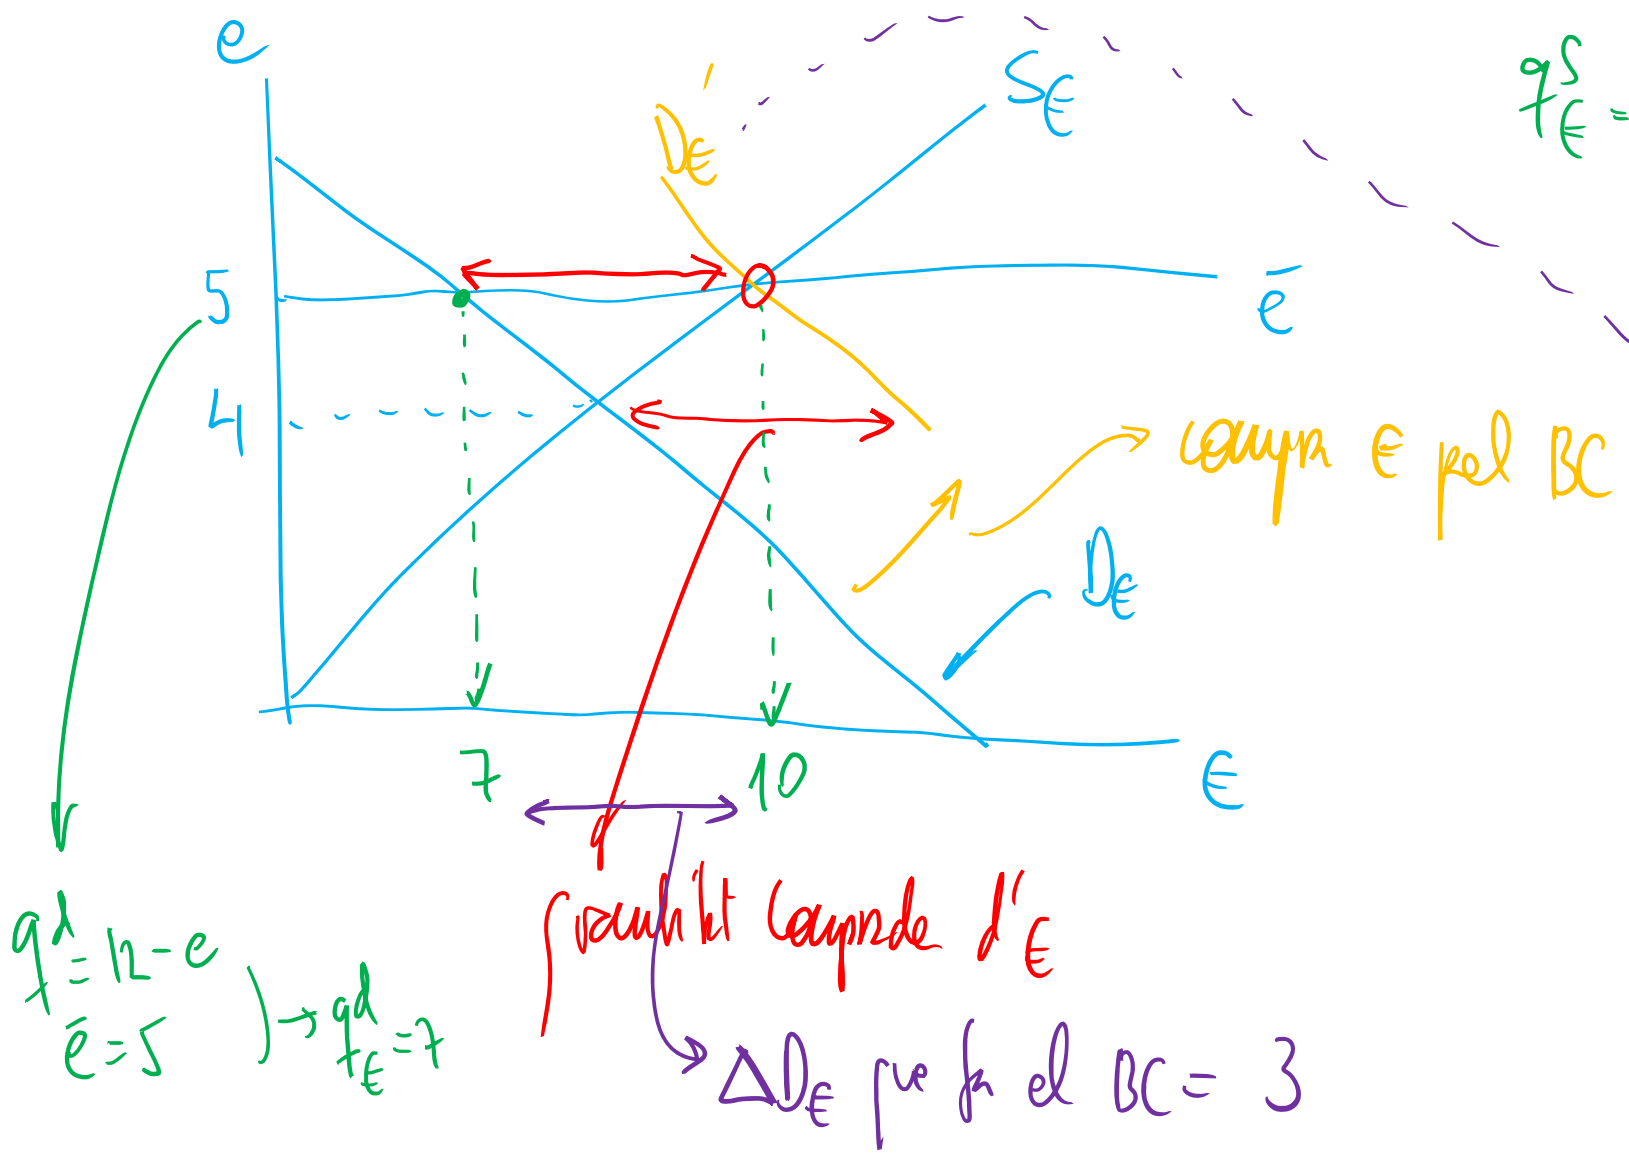 e
S€
D€'
qˢ€ =
5
ē
4
compra € pel BC
D€
7
10
€
qᵈ = 12 - e
ē = 5
→ qᵈ€ = 7
quantitat comprada d'€
ΔD€ que fa el BC = 3